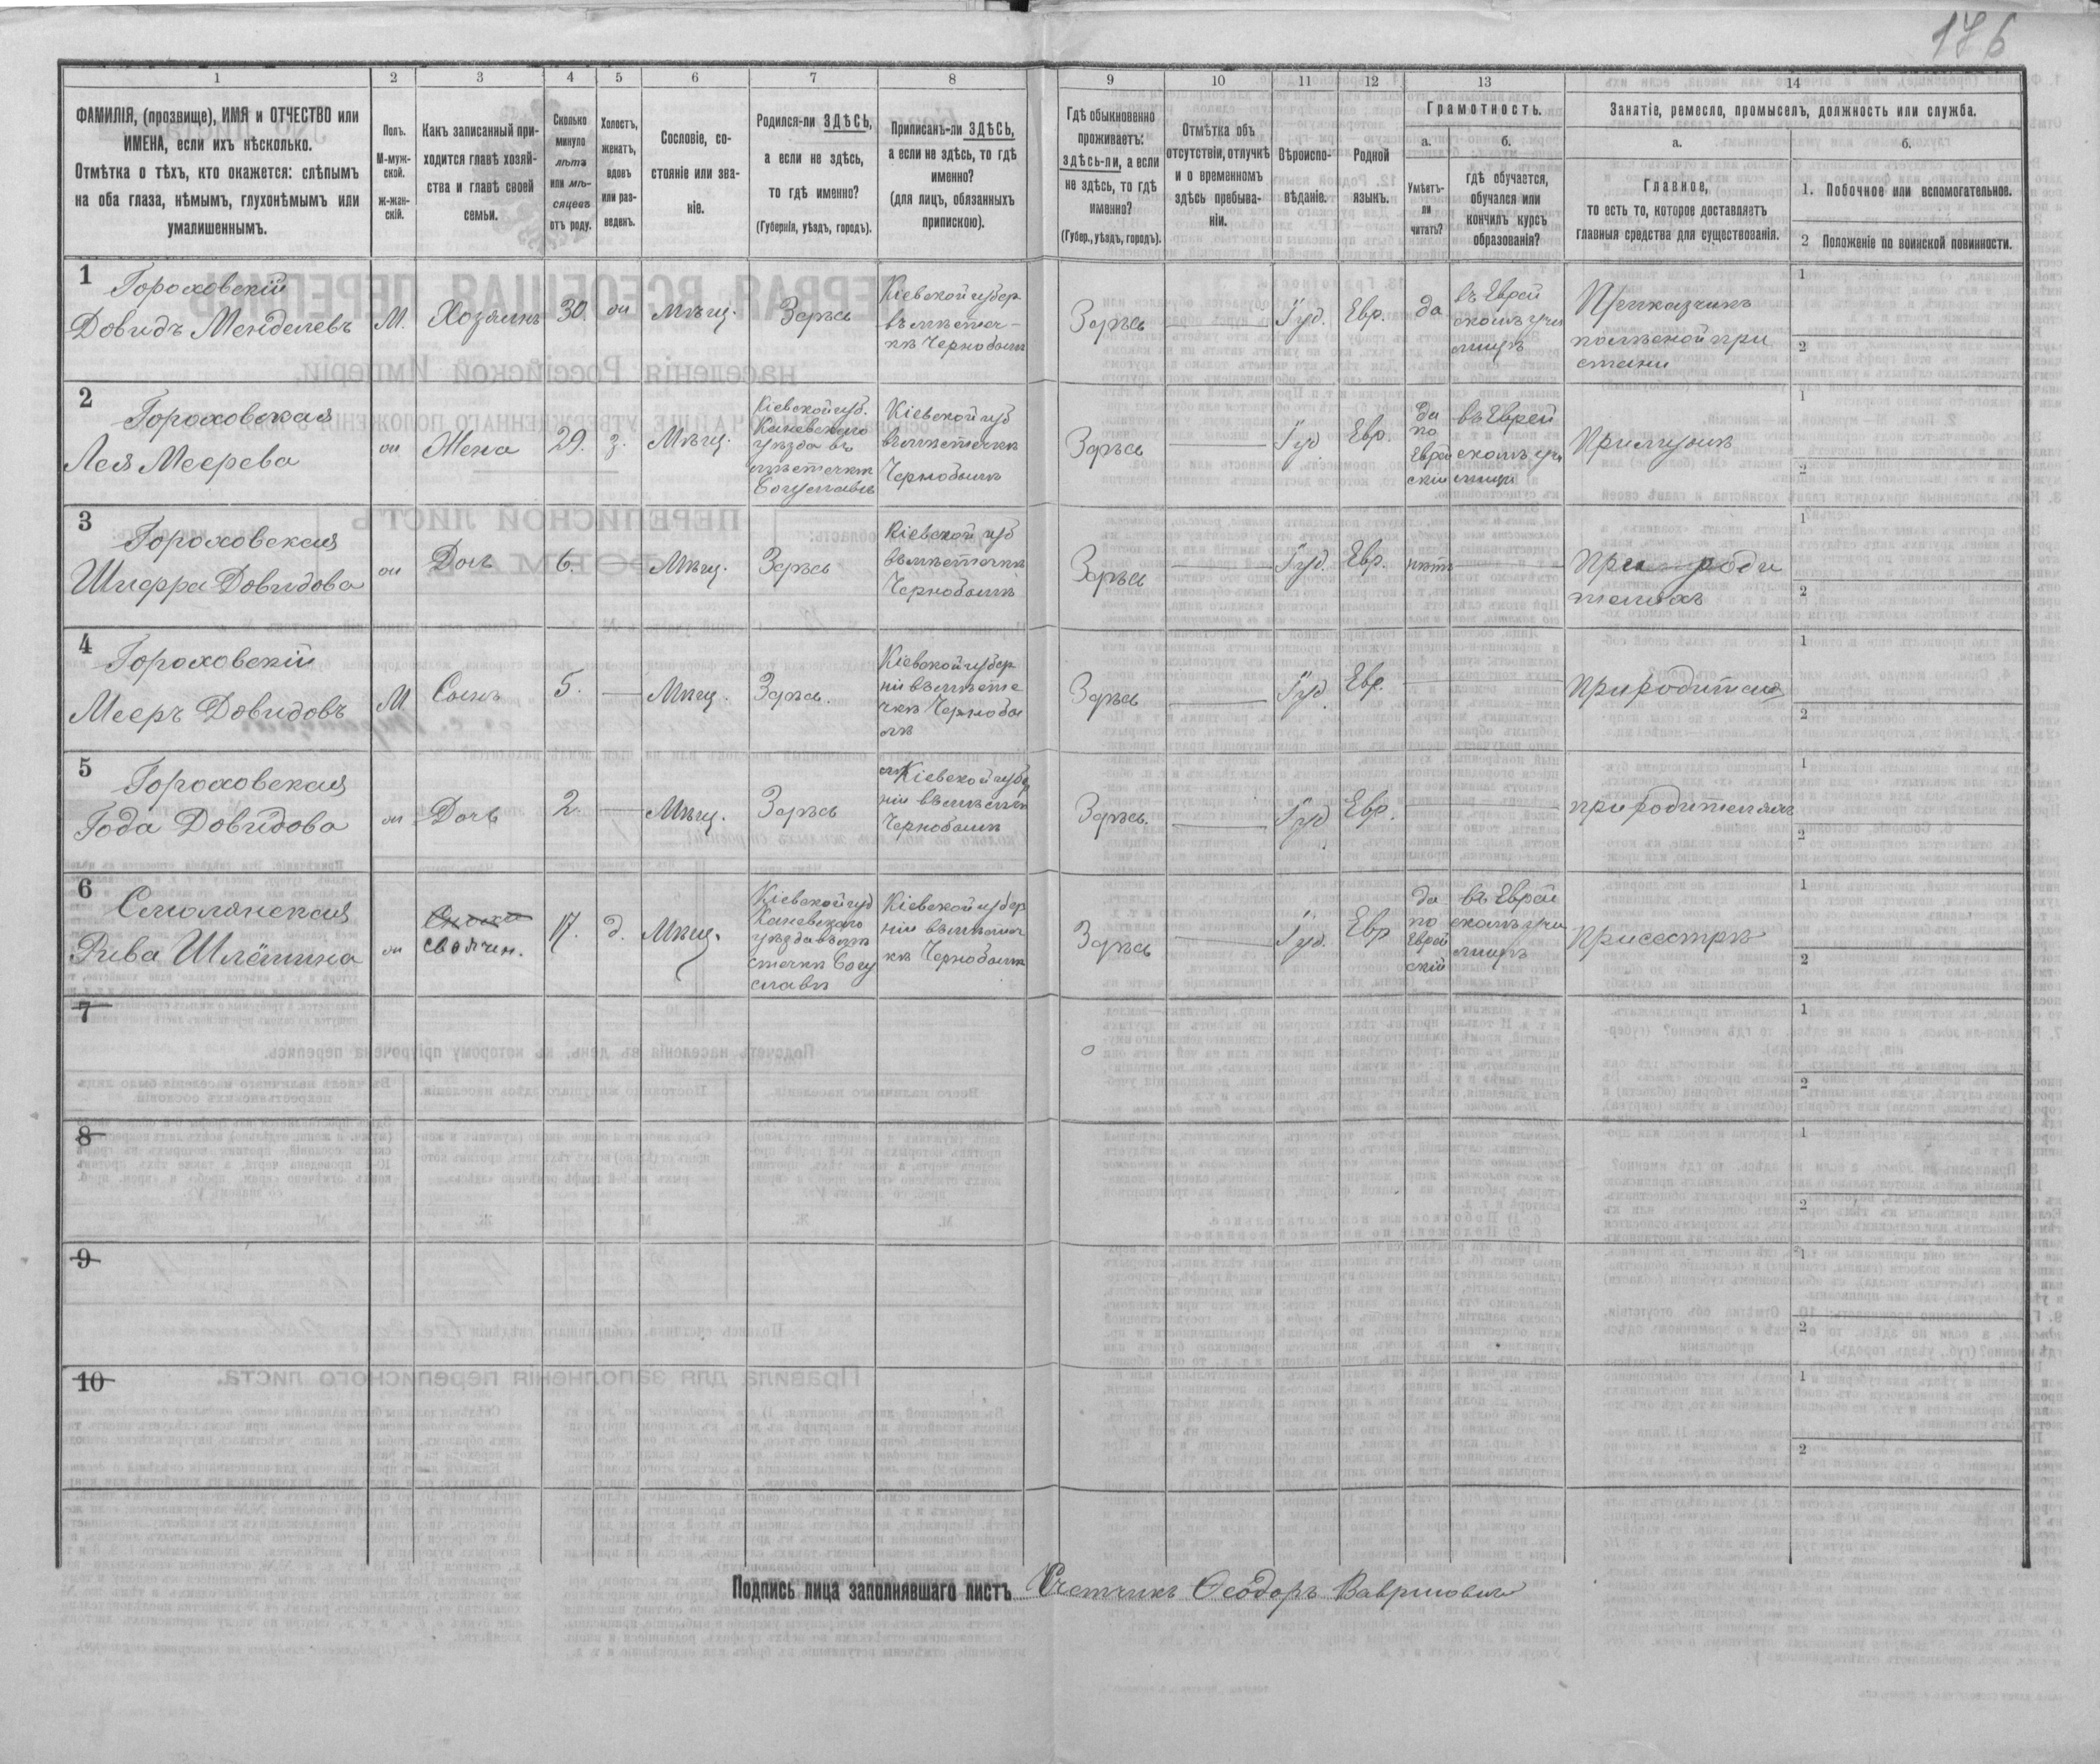 176
1
2
3
4
5
6
7
8
9
10
11
12
13
14
ФАМИЛІЯ, (прозвище), ИМЯ и ОТЧЕСТВО или
ИМЕНА, если ихъ нѣсколько.
Отмѣтка о тѣхъ, кто окажется: слѣпымъ
на оба глаза, нѣмымъ, глухонѣмымъ или
умалишеннымъ.
Полъ.
М-муж-
ской.
ж-жен-
скій.
Какъ записанный при-
ходится главѣ хозяй-
ства и главѣ своей
семьи.
Сколько
минуло
лѣтъ
или мѣ-
сяцевъ
отъ роду.
Холостъ,
женатъ,
вдовъ
или раз-
веденъ.
Сословіе, со-
стояніе или зва-
ніе.
Родился-ли ЗДѢСЬ,
а если не здѣсь,
то гдѣ именно?
(Губернія, уѣздъ, городъ).
Приписанъ-ли ЗДѢСЬ,
а если не здѣсь, то гдѣ
именно?
(для лицъ, обязанныхъ
припискою).
Гдѣ обыкновенно
проживаетъ:
здѣсь-ли, а если
не здѣсь, то гдѣ
именно?
(Губер., уѣздъ, городъ).
Отмѣтка объ
отсутствіи, отлучкѣ
и о временномъ
здѣсь пребыва-
ніи.
Вѣроиспо-
вѣданіе.
Родной
языкъ.
Грамотность.
а.
Умѣетъ-
ли
читать?
б.
гдѣ обучается,
обучался или
кончилъ курсъ
образованія?
Занятіе, ремесло, промыселъ, должность или служба.
а.
Главное,
то есть то, которое доставляетъ
главныя средства для существованія.
б.
1. Побочное или вспомогательное.
2 Положеніе по воинской повинности.
1
Гороховскій
Довидъ Менделевъ
М.
Хозяинъ
30.
Мѣщ.
Здѣсь
Кіевской губер
въ мѣстеч-
кѣ Чернобылѣ
Здѣсь
Іуд.
Евр.
да
въ Еврей
скомъ учи
лищѣ
Приказчикъ
на лѣсной при
стани
1
2
2
Гороховская
Лея Меерева
Жена
29.
з.
Мѣщ.
Кіевской губ.
Каневскаго
уѣзда въ
мѣстечкѣ
Богуславѣ
Кіевской губ
въ мѣстечкѣ
Чернобылѣ
Здѣсь
Іуд
Евр.
да
по
Еврей
скій
въ Еврей
скомъ учи
лищѣ
При мужѣ
1
2
3
Гороховская
Шифра Довидова
Дочь
6.
Мѣщ.
Здѣсь
Кіевской губ
въ мѣстечкѣ
Чернобылѣ
Здѣсь
Іуд.
Евр.
нѣтъ
При роди
теляхъ
1
2
4
Гороховскій
Мееръ Довидовъ
М
Сынъ
5.
Мѣщ.
Здѣсь.
Кіевской губер
ніи въ мѣсте
чкѣ Чернобы
лѣ
Здѣсь
Іуд
Евр.
при родителя
1
2
5
Гороховская
Года Довидова
Дочь
2.
Мѣщ.
Здѣсь
Кіевской губер
ніи въ мѣстеч
Чернобылѣ
Здѣсь.
Іуд
Евр.
при родителяхъ
1
2
6
Смолянская
Рива Шлёмина
своячен.
17.
д.
Мѣщ.
Кіевской губ
Каневскаго
уѣзда въ мѣ
стечкѣ Богу
славѣ
Кіевской губер
ніи въ мѣстеч
кѣ Чернобылѣ
Здѣсь
Іуд.
Евр
да
по
Еврей
скій
въ Еврей
скомъ учи
лищѣ
При сестрѣ
1
2
7
1
2
8
1
2
9
1
2
10
1
2
Подпись лица заполнявшаго листъ Счетчикъ Ѳеодоръ